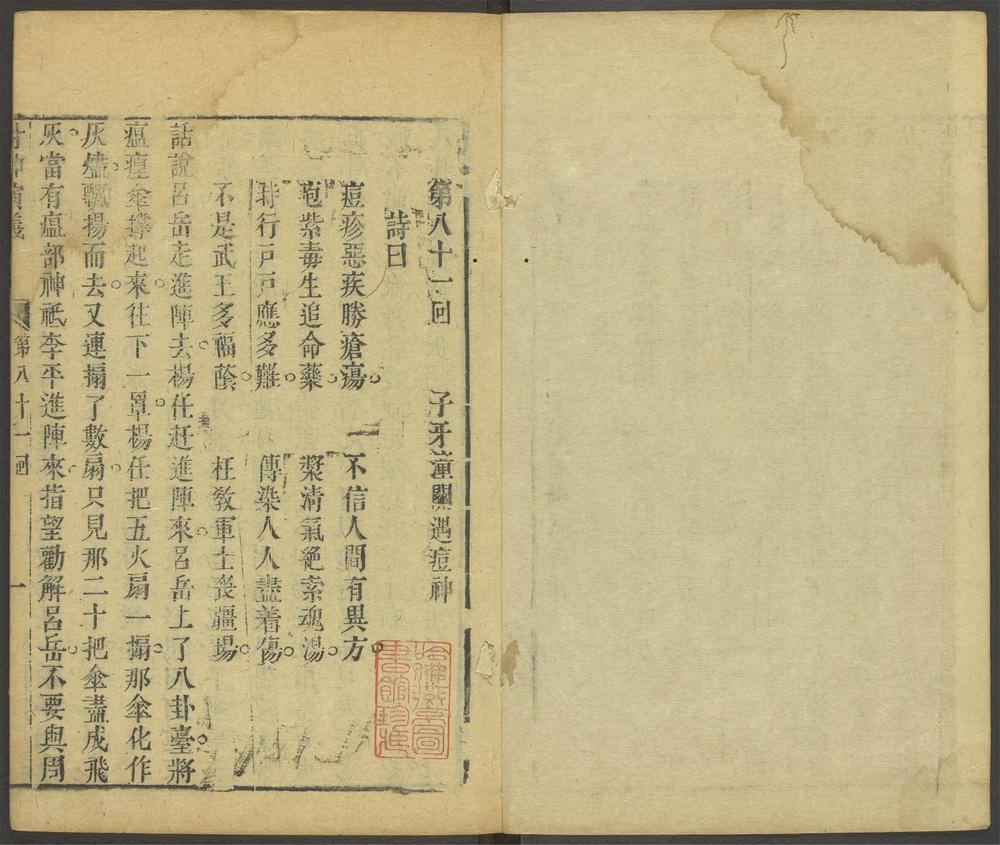 第八十一回　子牙潼關遇痘神
詩曰
痘疹惡疾勝瘡瘍。不信人間有異方。
疱紫毒生追命藥。漿清氣絕索魂湯。
時行戸戸應多難。傳染人人盡着傷。
不是武王多福蔭。枉教軍士喪疆場。
話說呂岳走進陣去。楊任赶進陣來。呂岳上了八卦臺。將
瘟㾮傘撐起來。往下一罩。楊任把五火扇一搧。那傘化作
灰燼。飄揚而去。又連搧了數扇。只見那二十把傘盡成飛
灰。當有瘟部神祇李平進陣來。指望勸解呂岳。不要與周
封神演義　第八十一回　一
哈佛燕京圖書館珍藏